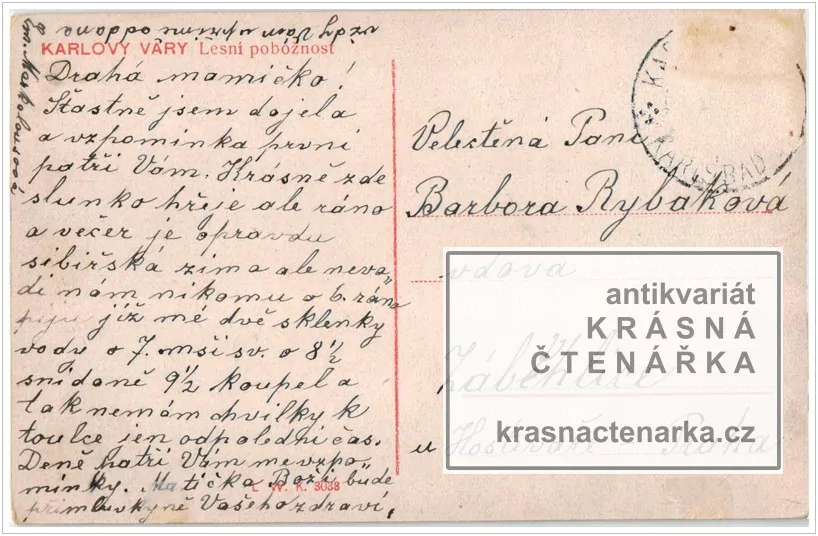 KARLOVY VARY Lesní pobožnost
Drahá mamičko!
Šťastně jsem dojela
a vzpominka první
patří Vám. Krásně zde
slunko hřeje ale ráno
a večer je opravdu
sibiřská zima ale neva„
dí nám nikomu o 6. ráno
piju již mé dvě sklenky
vody o 7. mši sv. o 8½
snídaně 9½ koupel a
tak nemám chvilky k
toulce jen odpolední čas.
Deně patří Vám mevzpo„
mínky. Matička Boží bude
přímluvkyně Vašeho zdraví,
vždy Vám upřímna oddana
L. W. K. 3038
KARLSBAD
Velectěná Paní
Barbora Rybaková
vdova
Záběhlice
u Hostivaře Praha
antikvariát
KRÁSNÁ
ČTENÁŘKA
krasnactenarka.cz